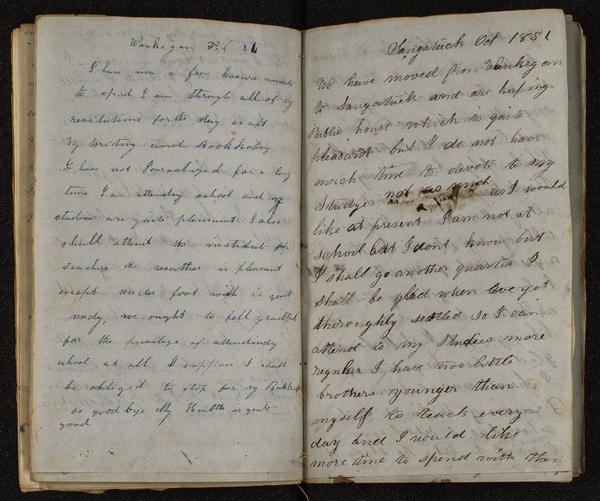 Waukegan Feb 21
I have now a few leasure moments
to spend I am through all of my
resitations for the day except
my writing and Book keeping
I have not Journalized for a long
time I am attending school and my
studies are quite pleasant I also
shall attend the institute for
Teachers the weather is pleasant
except under foot wich is quit
mudy, we ought to fell grateful
for the privilege of attending
school at all I suppose I shall
be obliged to stop for my Book
so good bye My Health is quite
good
Sangatuck Oct 1851
We have moved from Waukegan
to Sangatuck and are keping
Public house which is quite
pleasant but I do not have
much time to devote to my
Studyes not as much as I would
like at present I am not at
school but I dont know but
I shall go another quarter I
shall be glad when we get
thoroughly settled so I can
attend to my Studies more
regular I have two little
brothers younger than
myself to teach every
day and I would like
more time to spend with them